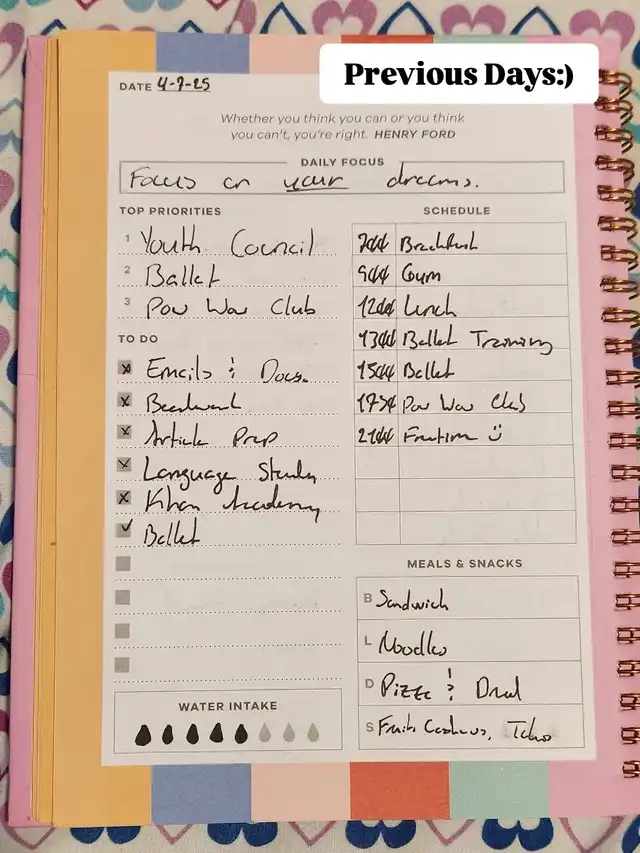 Previous Days:)
DATE 4-7-25
Whether you think you can or you think
you can't, you're right. HENRY FORD
DAILY FOCUS
Focus on your dreams.
TOP PRIORITIES
1 Youth Council
2 Ballet
3 Pow Wow Club
TO DO
Emails & Docs.
Beadwork
Article Prep
Language Study
Khan Academy
Ballet
WATER INTAKE
SCHEDULE
700 Breakfast
900 Gym
1200 Lunch
1300 Ballet Training
1500 Ballet
1730 Pow Wow Club
2100
MEALS & SNACKS
B Sandwich
L Noodles
D Pizza &
S Fruit, Cashews,